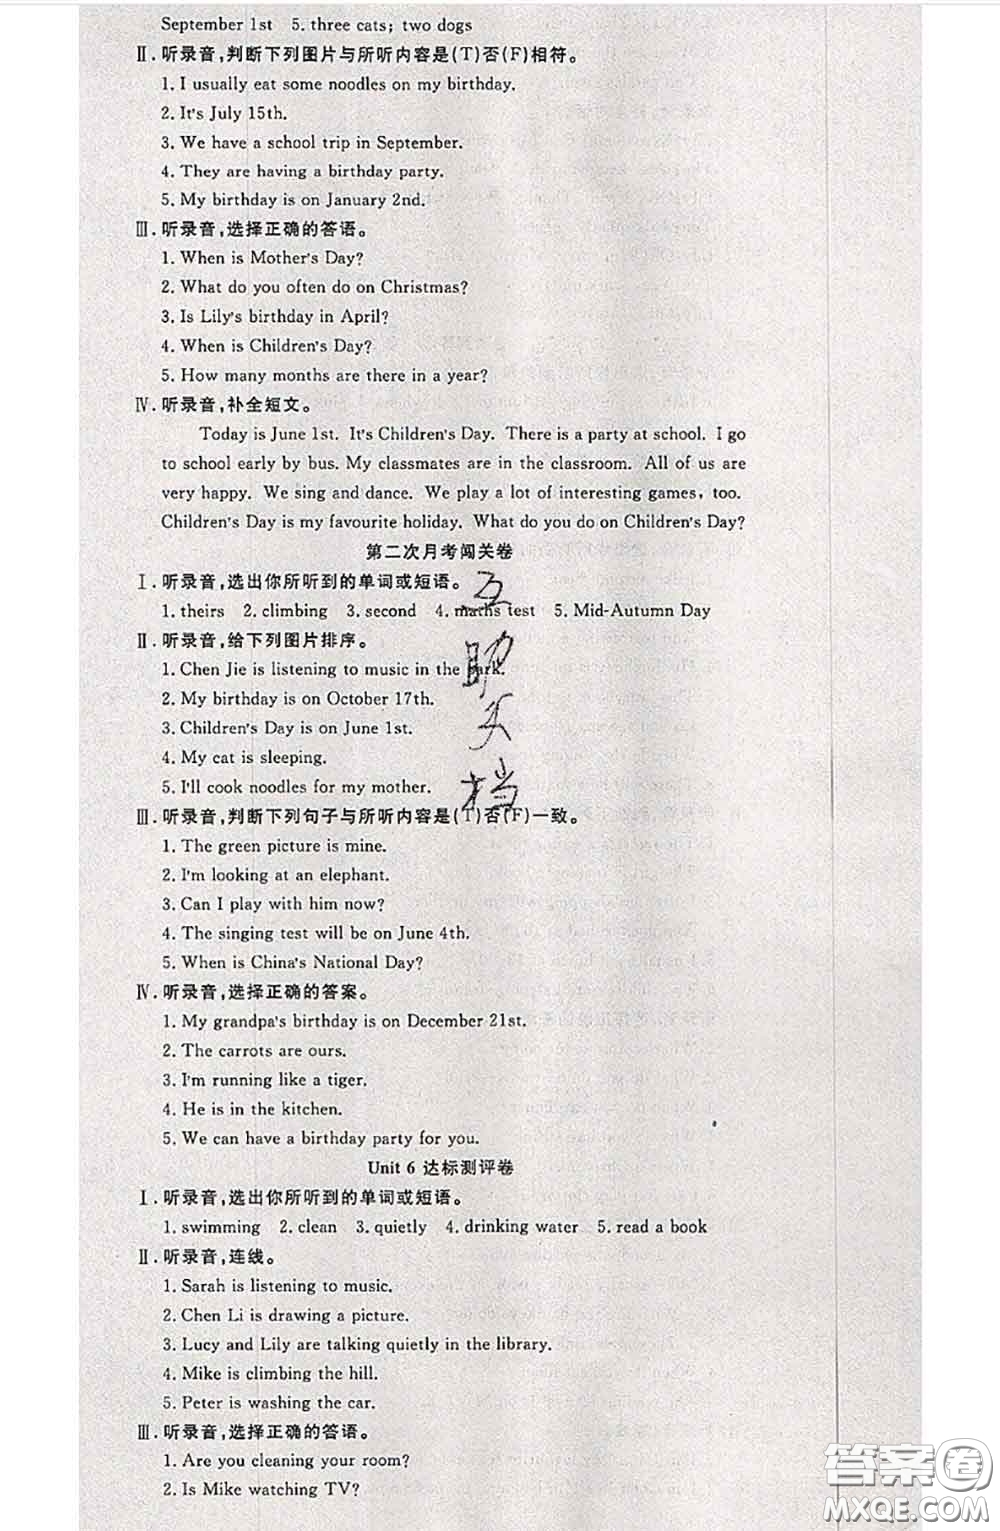 September 1st 5. three cats; two dogs
Ⅱ. 听录音,判断下列图片与所听内容是(T)否(F)相符。
1. I usually eat some noodles on my birthday.
2. It's July 15th.
3. We have a school trip in September.
4. They are having a birthday party.
5. My birthday is on January 2nd.
Ⅲ. 听录音,选择正确的答语。
1. When is Mother's Day?
2. What do you often do on Christmas?
3. Is Lily's birthday in April?
4. When is Children's Day?
5. How many months are there in a year?
Ⅳ. 听录音,补全短文。
Today is June 1st. It's Children's Day. There is a party at school. I go
to school early by bus. My classmates are in the classroom. All of us are
very happy. We sing and dance. We play a lot of interesting games, too.
Children's Day is my favourite holiday. What do you do on Children's Day?
第二次月考闯关卷
Ⅰ. 听录音,选出你所听到的单词或短语。
1. theirs 2. climbing 3. second 4. maths test 5. Mid-Autumn Day
Ⅱ. 听录音,给下列图片排序。
1. Chen Jie is listening to music in the park.
2. My birthday is on October 17th.
3. Children's Day is on June 1st.
4. My cat is sleeping.
5. I'll cook noodles for my mother.
Ⅲ. 听录音,判断下列句子与所听内容是(T)否(F)一致。
1. The green picture is mine.
2. I'm looking at an elephant.
3. Can I play with him now?
4. The singing test will be on June 4th.
5. When is China's National Day?
Ⅳ. 听录音,选择正确的答案。
1. My grandpa's birthday is on December 21st.
2. The carrots are ours.
3. I'm running like a tiger.
4. He is in the kitchen.
5. We can have a birthday party for you.
Unit 6 达标测评卷
Ⅰ. 听录音,选出你所听到的单词或短语。
1. swimming 2. clean 3. quietly 4. drinking water 5. read a book
Ⅱ. 听录音,连线。
1. Sarah is listening to music.
2. Chen Li is drawing a picture.
3. Lucy and Lily are talking quietly in the library.
4. Mike is climbing the hill.
5. Peter is washing the car.
Ⅲ. 听录音,选择正确的答语。
1. Are you cleaning your room?
2. Is Mike watching TV?
答案圈
MXQE.COM